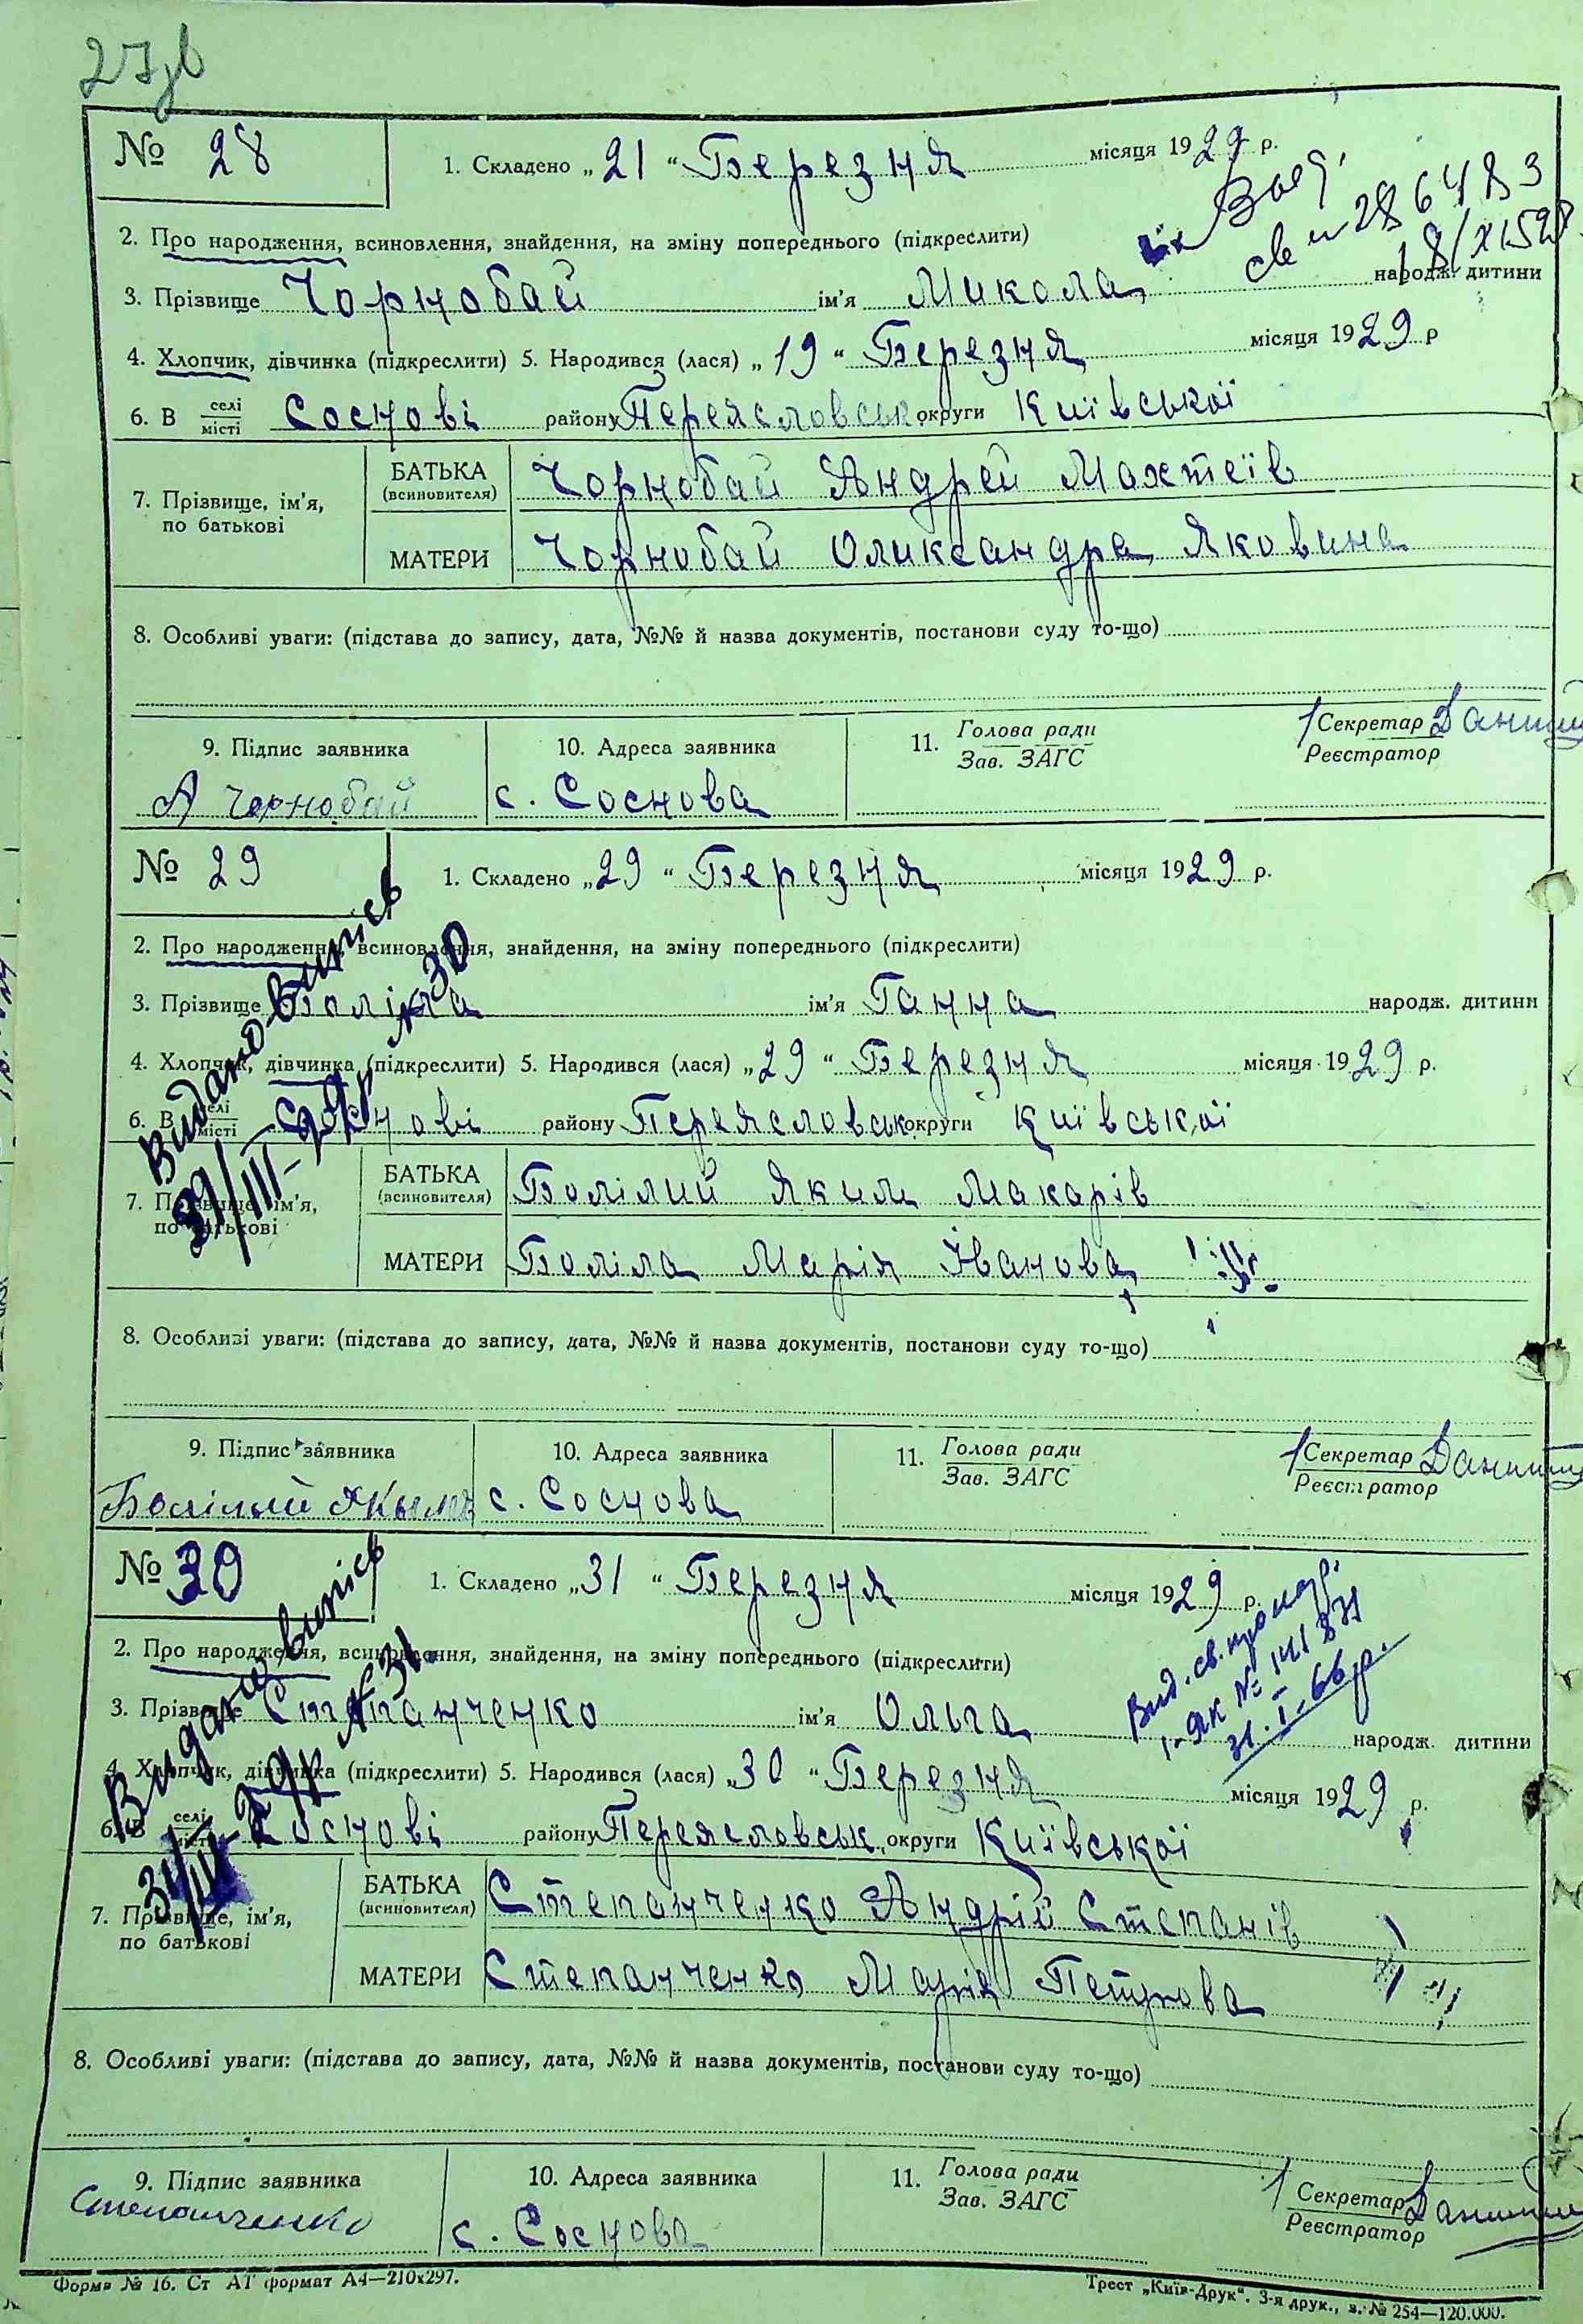 27зв
№ 28 1. Складено „21" Березня місяця 1929 р.
2. Про народження, всиновлення, знайдення, на зміну попереднього (підкреслити)
св 286483
3. Прізвище Чорнобай ім'я Микола народж. дитини
4. Хлопчик, дівчинка (підкреслити) 5. Народився (лася) „19" Березня місяця 1929 р
6. В селі місті Соснові району Переясловськ округи Київської
7. Прізвище, ім'я, по батькові
БАТЬКА (всиновителя) Чорнобай Андрей Махтеїв
МАТЕРИ Чорнобай Олександра Яковина
8. Особливі уваги: (підстава до запису, дата, №№ й назва документів, постанови суду то-що)
9. Підпис заявника 10. Адреса заявника 11. Голова ради Зав. ЗАГС Секретар Реєстратор
А Чернобай с. Соснова
№ 29 1. Складено „29" Березня місяця 1929 р.
Видано випись № 30
29/III-29р
2. Про народження, всиновлення, знайдення, на зміну попереднього (підкреслити)
3. Прізвище Боліла ім'я Ганна народж. дитини
4. Хлопчик, дівчинка (підкреслити) 5. Народився (лася) „29" Березня місяця 1929 р.
6. В селі місті Соснові району Переясловськ округи Київської
7. Прізвище, ім'я, по батькові
БАТЬКА (всиновителя) Болілий Яким Макарів
МАТЕРИ Боліла Марія Іванова
8. Особливі уваги: (підстава до запису, дата, №№ й назва документів, постанови суду то-що)
9. Підпис заявника 10. Адреса заявника 11. Голова ради Зав. ЗАГС Секретар Реєстратор
Болілый Якым с. Соснова
№ 30 1. Складено „31" Березня місяця 1929 р.
Видано випись № 31
31/III-29р
2. Про народження, всиновлення, знайдення, на зміну попереднього (підкреслити)
Вид. св. про нар.
I-ЯК № 141831
31-I-66р.
3. Прізвище Степанченко ім'я Ольга народж. дитини
4. Хлопчик, дівчинка (підкреслити) 5. Народився (лася) „30" Березня місяця 1929 р.
6. В селі місті Соснові району Переясловськ округи Київської
7. Прізвище, ім'я, по батькові
БАТЬКА (всиновителя) Степанченко Андрій Степанів
МАТЕРИ Степанченко Марія Петрова
8. Особливі уваги: (підстава до запису, дата, №№ й назва документів, постанови суду то-що)
9. Підпис заявника 10. Адреса заявника 11. Голова ради Зав. ЗАГС Секретар Реєстратор
Степанченко с. Соснова
Форма № 16. Ст АТ формат А4—210х297. Трест „Київ-Друк". 3-я друк., з. № 254—120.000.